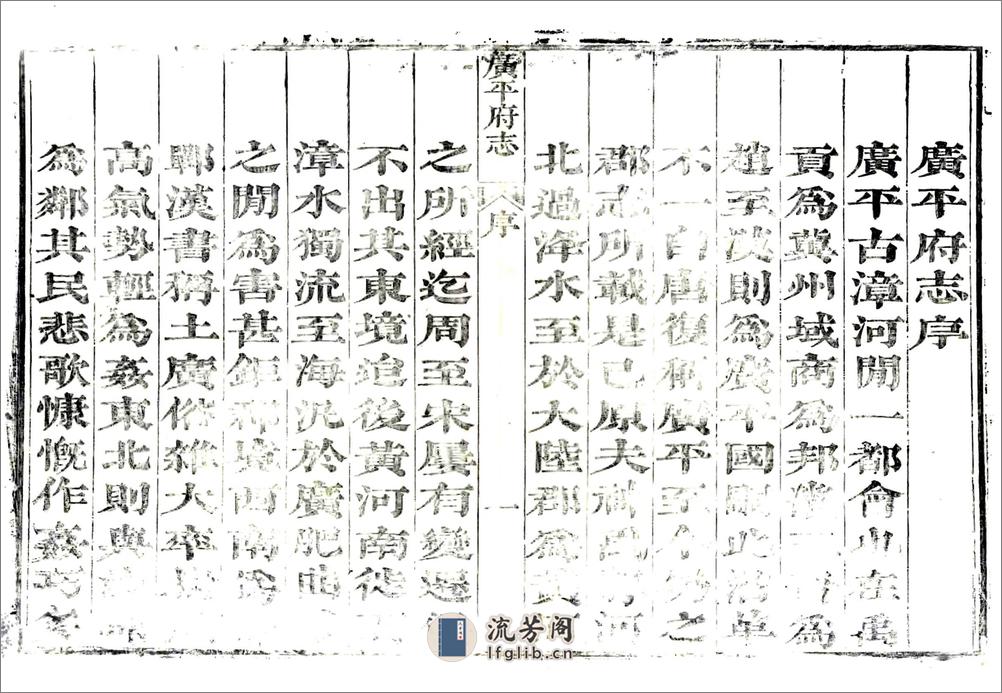 廣平府志序
廣平古漳河閒一都會也在禹
貢爲冀州域商爲邦 爲
趙至漢則爲廣平國 此沿革
不一自唐復稱廣平至今 之
郡志所載是已原夫 河
北過洚水至於大陸郡爲
廣平府志 序 一
之所經迄周至宋屢有變遷
不出其東境迨後黃河南徙
漳水獨流至海況於廣肥曲
之閒爲害甚鉅 西南
鄲漢書稱土廣俗雜大率
高氣勢輕爲姦東北則與
爲鄰其民悲歌慷慨作姦巧
流芳阁
lfglib.cn